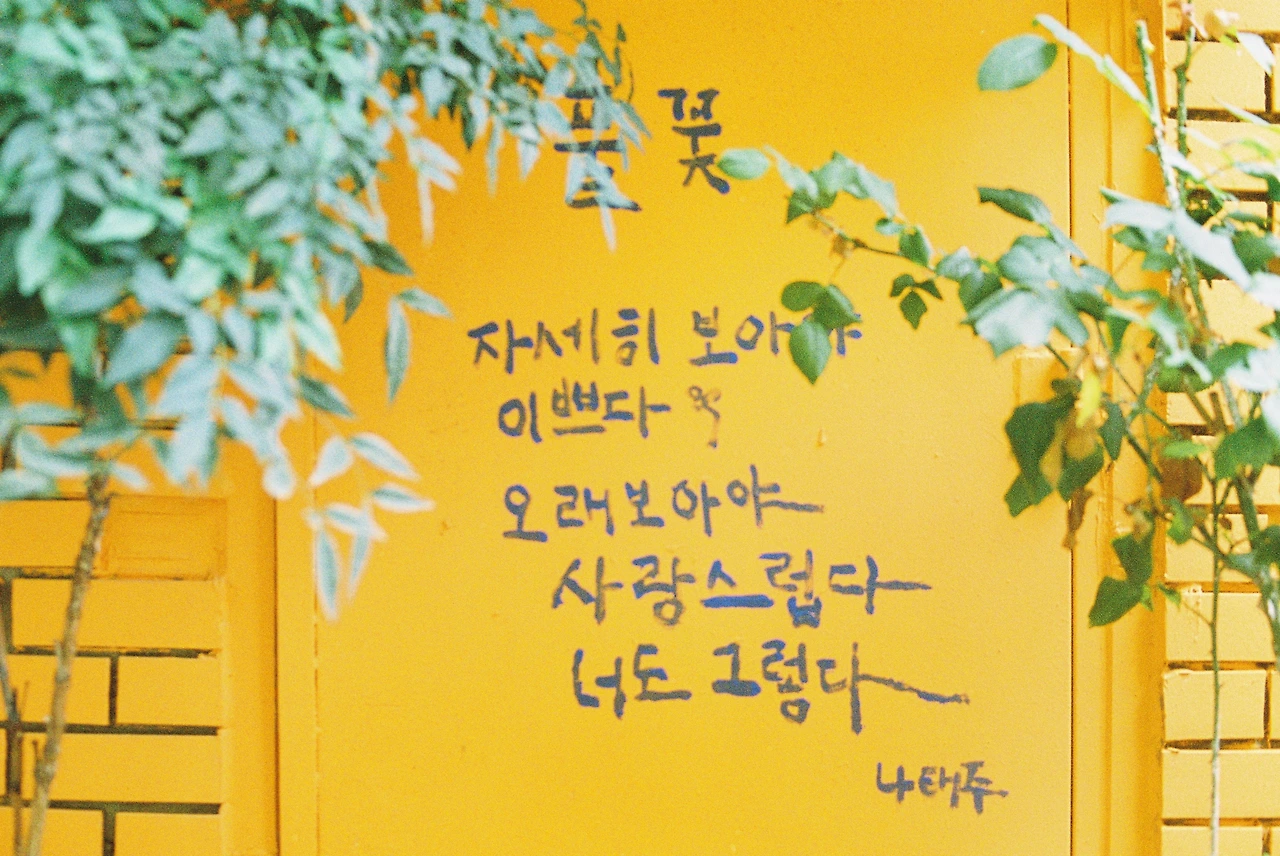 풀꽃
자세히 보아야
이쁘다
오래보아야
사랑스럽다
너도 그렇다
나태주